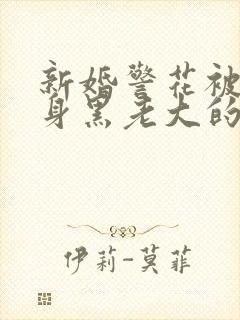 新婚警花被
身黑老大的
伊莉-莫菲